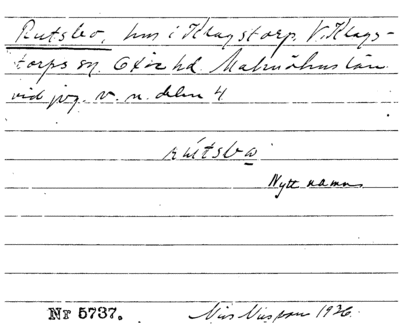 Rutsbo, hus i Klagstorp V. Klags-
torps sn Oxie hd. Malmöhus län
vid jvg. v. n. delen 4
rútsbo
Nytt namn
Nr 5737. Nils Nilsson 1936.